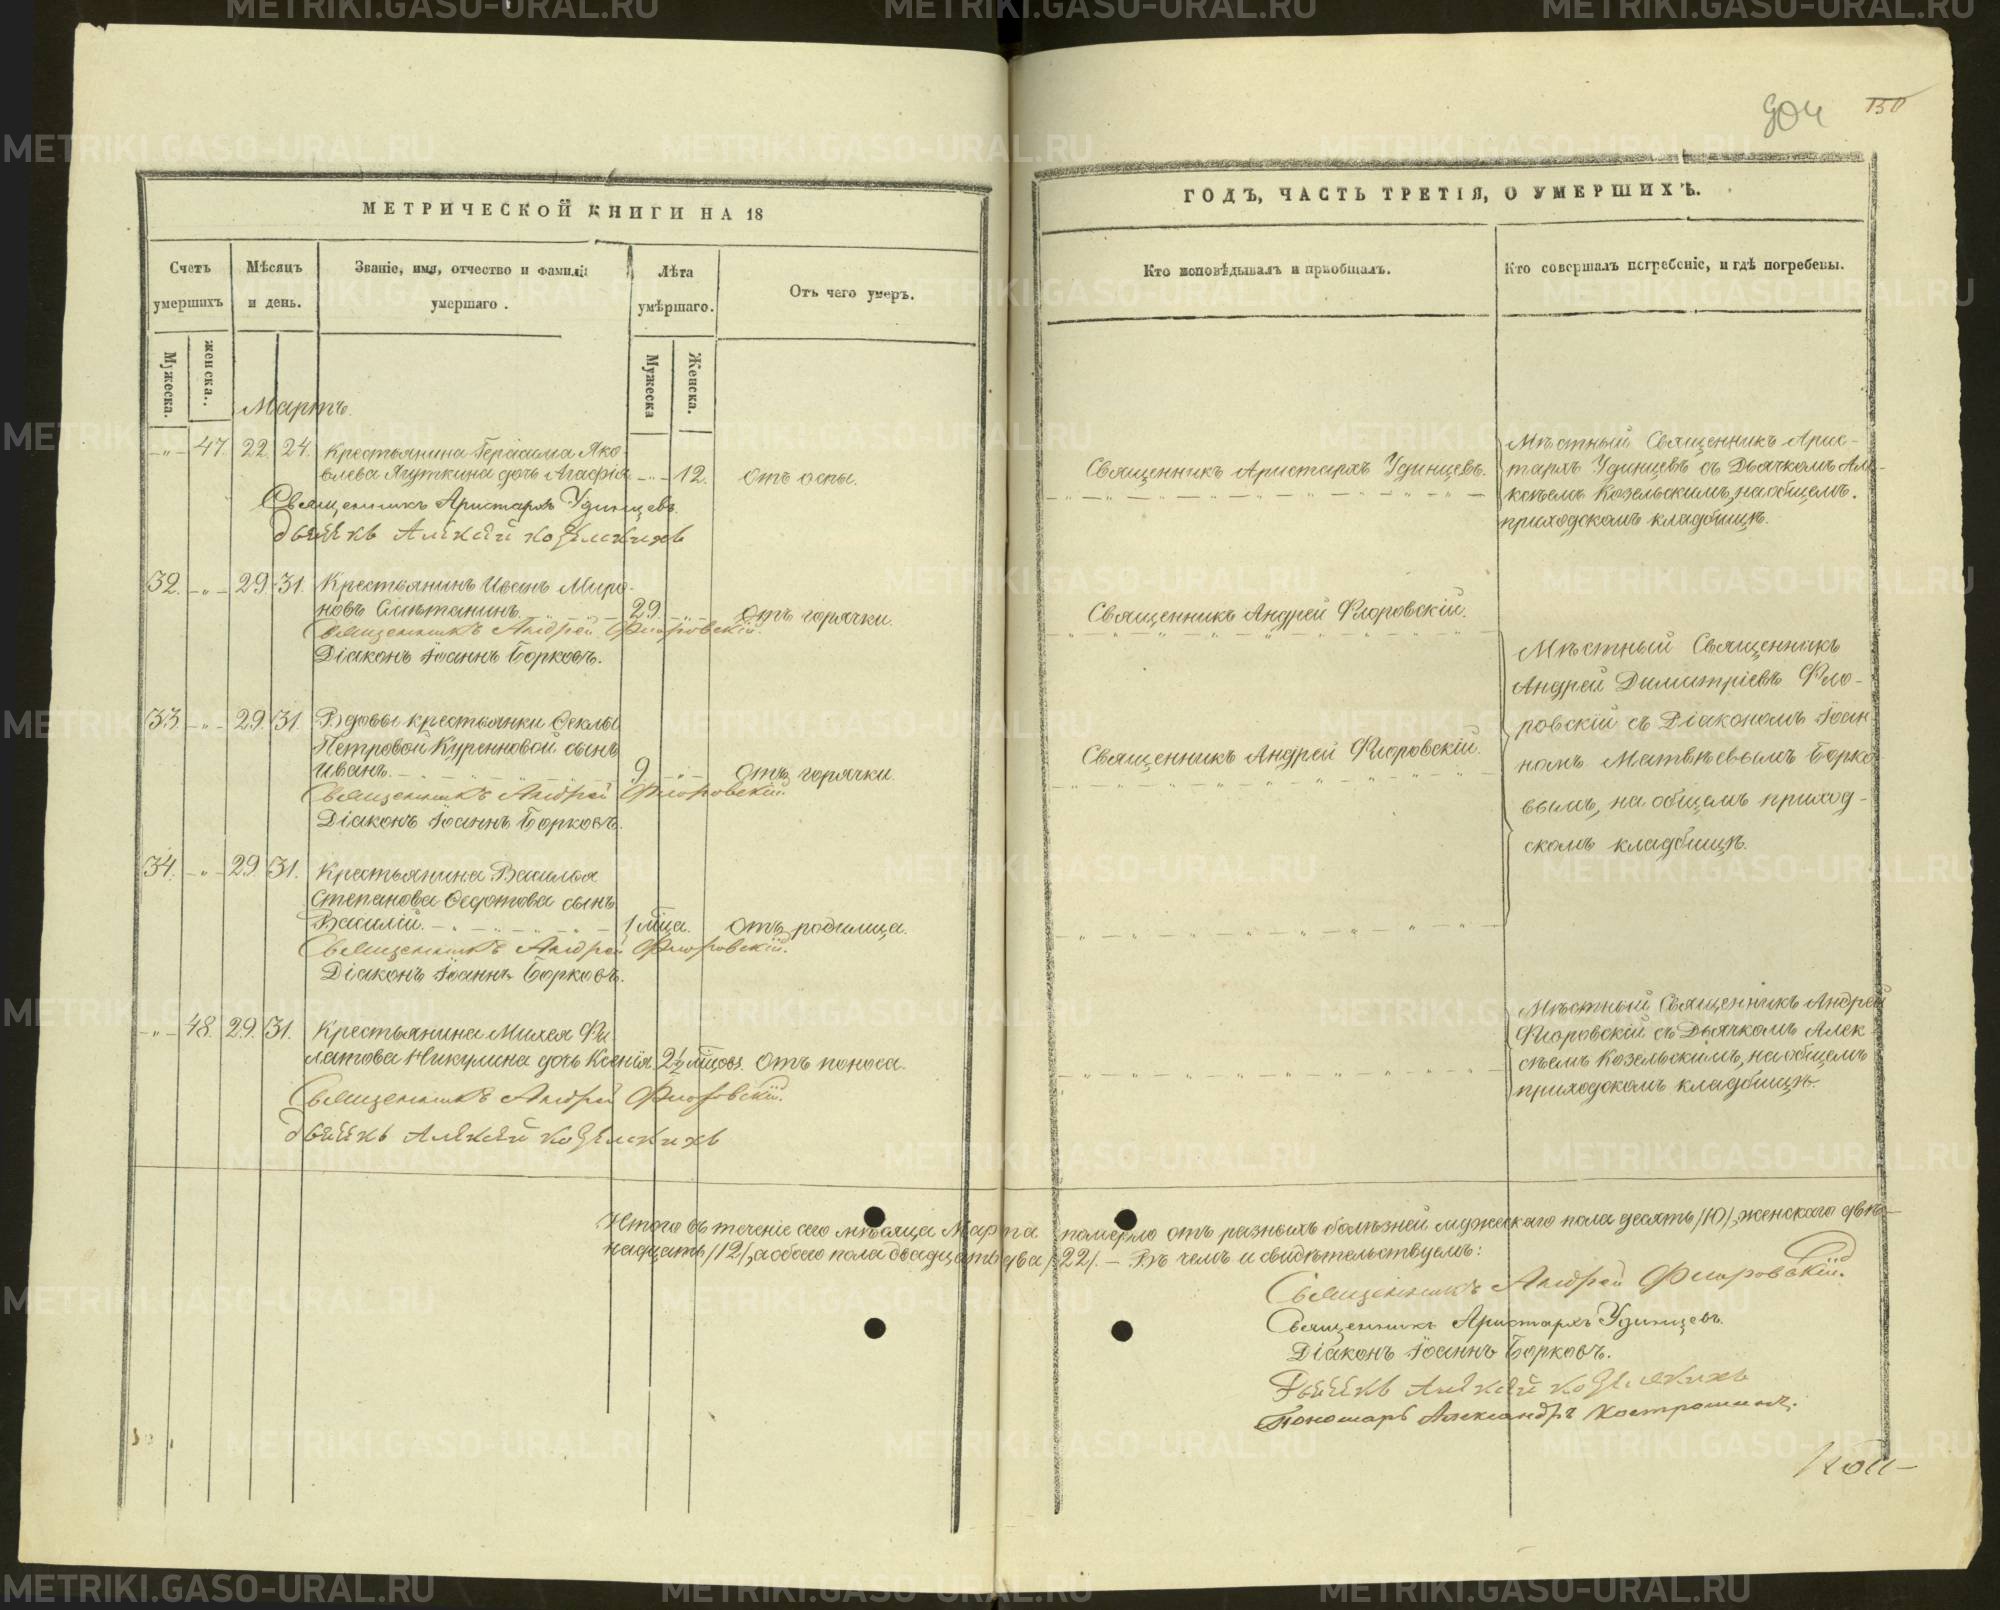 904 150
МЕТРИЧЕСКОЙ КНИГИ НА 18
ГОДЪ, ЧАСТЬ ТРЕТІЯ, О УМЕРШИХЪ.
Счетъ умершихъ
Мѣсяцъ и день.
Званіе, имя, отчество и фамилія умершаго.
Лѣта умѣршаго.
Отъ чего умеръ.
Кто исповѣдывалъ и пріобщалъ.
Кто совершалъ погребеніе, и гдѣ погребены.
Мужеска.
женска.
Мужеска
Женска.
Мартъ.
47. 22. 24. Крестьянина Герасима Яко-
влева Ягуткина дочь Агафія 12. отъ оспы.
Священникъ Аристархъ Удинцевъ.
Дьячекъ Алексей Козельскихъ
Священникъ Аристархъ Удинцевъ.
Мѣстный Священникъ Арис-
тархъ Удинцевъ съ Дьячкомъ Але-
ксѣемъ Козельскимъ, на общемъ
приходскомъ кладбищѣ.
32. 29. 31. Крестьянинъ Иванъ Миро-
новъ Смѣтанинъ. 29. отъ горячки.
Священникъ Андрей Флоровскій.
Діаконъ Іоаннъ Борковъ.
Священникъ Андрей Флоровскій.
33. 29. 31. Вдовы крестьянки Ѳеклы
Петровой Куренновой сынъ
Иванъ. 9. отъ горячки.
Священникъ Андрей Флоровскій.
Діаконъ Іоаннъ Борковъ.
Священникъ Андрей Флоровскій.
Мѣстный Священникъ
Андрей Димитріевъ Фло-
ровскій съ Діакономъ Іоан-
номъ Матвѣевымъ Борко-
вымъ, на общемъ приход-
скомъ кладбищѣ.
34. 29. 31. Крестьянина Василья
Степанова Ѳедотова сынъ
Василій. 1 мца. отъ родимца.
Священникъ Андрей Флоровскій.
Діаконъ Іоаннъ Борковъ.
48. 29. 31. Крестьянина Михея Фи-
латова Никулина дочь Ксенія 2½ мцовъ. отъ поноса.
Священникъ Андрей Флоровскій.
Дьячекъ Алексей Козельскихъ
Мѣстный Священникъ Андрей
Флоровскій съ Дьячкомъ Алек-
сѣемъ Козельскимъ, на общемъ
приходскомъ кладбищѣ.
Итого въ теченіе сего мѣсяца Марта померло отъ разныхъ болѣзней мужескаго пола десять /10/, женскаго двѣ-
надцать /12/, а обоего пола двадцать два /22/. — Въ чемъ и свидѣтельствуемъ:
Священникъ Андрей Флоровскій.
Священникъ Аристархъ Удинцевъ.
Діаконъ Іоаннъ Борковъ.
Дьячекъ Алексей Козельскихъ
Пономарь Александръ Костроминъ.
METRIKI.GASO-URAL.RU